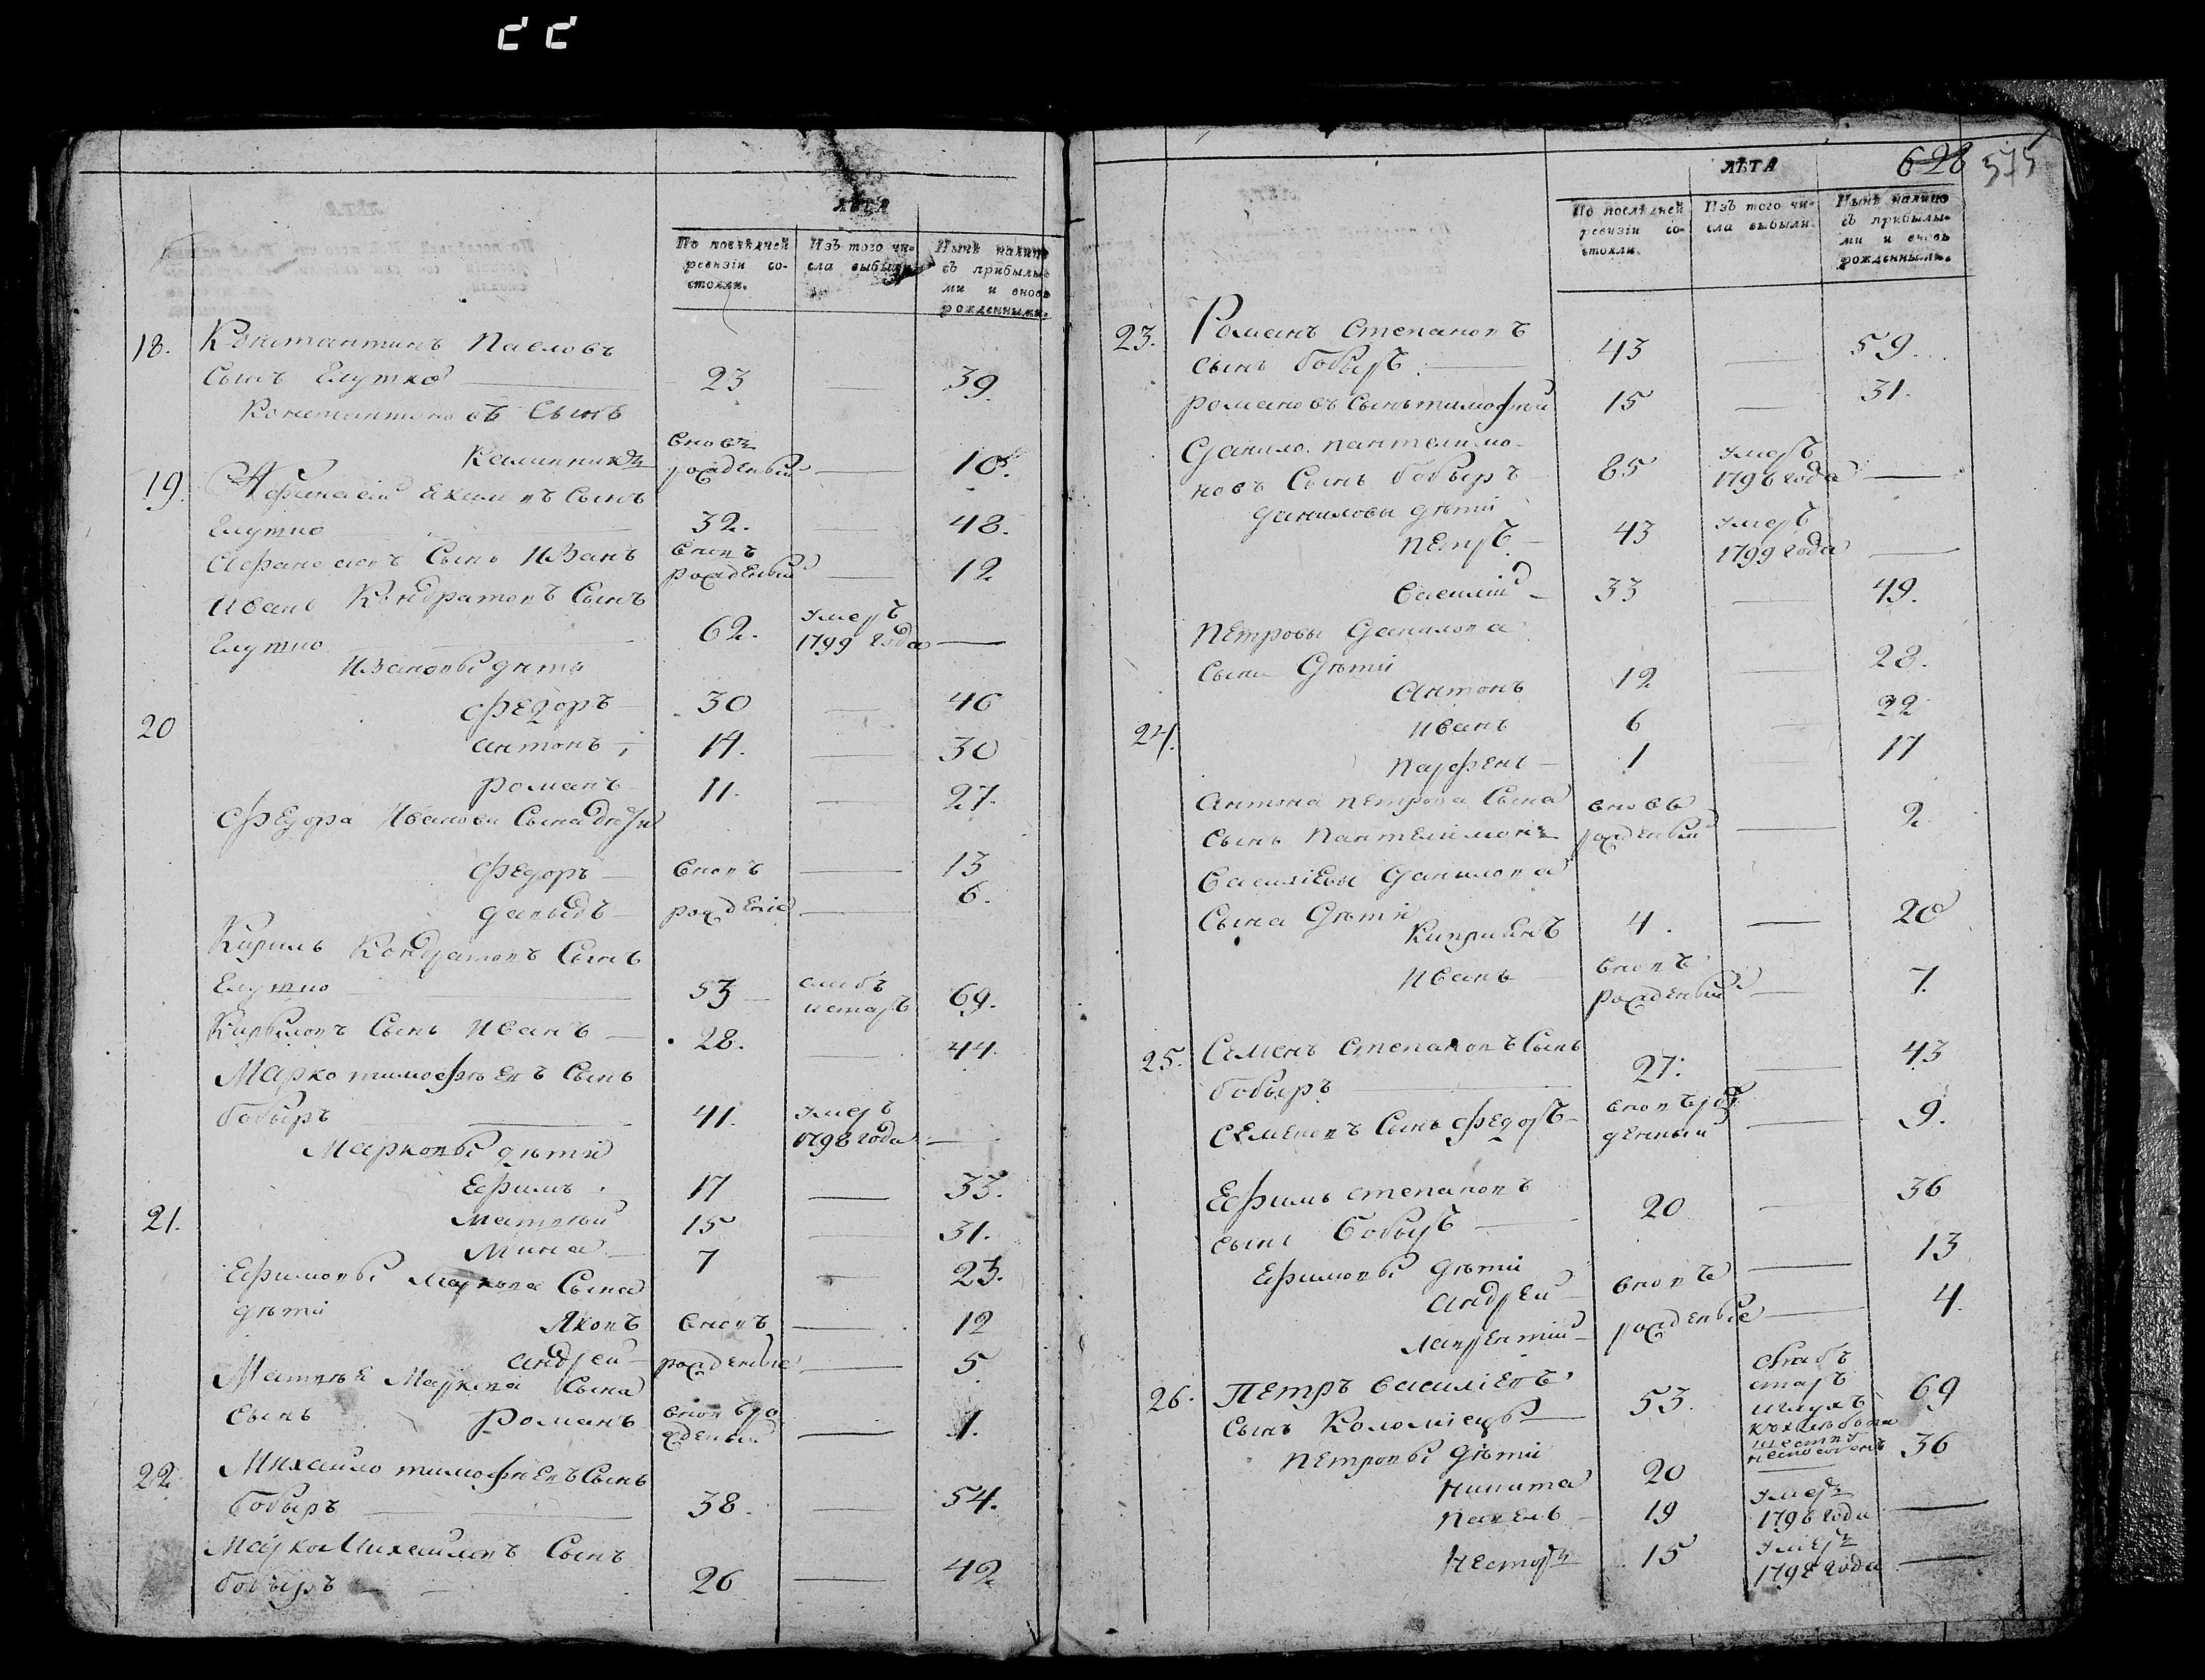 ЛѢТА
По послѣдней ревизіи со-
стояли.
Изъ того чи-
сла выбыли.
Нынѣ налицо
съ прибылы-
ми и вновь
рожденными.
18. Константинъ Павловъ
Сынъ Елутко 23 — 39.
Константиновъ Сынъ
Вновь
Калинникъ рожденый — 10.
19. Афанасій Екимовъ Сынъ
Елутко 32. — 48.
Афанасьевъ Сынъ Иванъ Вновъ
рожденый — 12
Иванъ Кондратовъ Сынъ
Елутко 62. умеръ
1799 года —
Ивановы дѣти
20 Федоръ 30 — 46
Антонъ 14. — 30
Романъ 11. — 27.
Федора Иванова Сына дѣти
Федоръ — Вновъ — 13
Давыдъ — рожденіе — 6.
Кирилъ Кондратовъ Сынъ
Елутко 53 — слабъ
и старъ 69.
Кириловъ Сынъ Иванъ — 28. — 44.
Марко тимофѣевъ Сынъ
бобыръ 41. умеръ
1798 года —
Марковы дѣти
Ефимъ 17 — 33.
21. Матвѣй 15 — 31.
Мина — 7 — 23.
Ефимовы Маркова Сына
дѣти Яковъ Вновъ — 12
Андрей — рожденые — 5.
Матвѣя Маркова Сына
Сынъ Романъ вновъ ро
жденый — 1.
22. Михайло тимофѣевъ Сынъ
бобыръ 38. — 54.
Марко Михайловъ Сынъ
бобыръ — 26 — 42
628 575
ЛѢТА
По послѣдней
ревизіи со-
стояли.
Изъ того чи-
сла выбыли.
Нынѣ налицо
съ прибылы-
ми и вновь
рожденными.
23. Романъ Степановъ
сынъ бобыръ. 43 — 59.
романовъ Сынъ тимофѣй 15 — 31.
Данило пантелимо-
новъ Сынъ бобыръ 85 умеръ
1796 года —
Даниловы дѣти
Петръ — 43 умеръ
1799 года —
Василій — 33 — 49.
Петровы Данилова
сына Дѣти
Антонъ 12 — 28.
24. Иванъ 6 — 22
Парфенъ — 1 — 17
Антона петрова Сына вновь
сынъ Пантелимонъ рожденый — 2
Васильевы Данилова
Сына Дѣти
Киприянъ 4. — 20
Иванъ — Вновъ
рожденый — 7.
25. Семенъ Степановъ Сынъ
бобыръ 27. — 43
Семеновъ Сынъ Федоръ — вновъ рож
денный — 9.
Ефимъ степановъ
сынъ бобыръ — 20 — 36
Ефимовы дѣти
Андрей — вновъ — 13
Лаврентій — рожденые — 4.
26. Петръ Василіевъ
Сынъ Коломіецъ — 53. слабъ
старъ
и глухъ
къ хлѣбопа
шеству
неспособенъ 69
Петровы Дѣти
Никита 20 — 36
Павелъ — 19 умеръ
1796 года —
Несторъ 15 умеръ
1798 года —